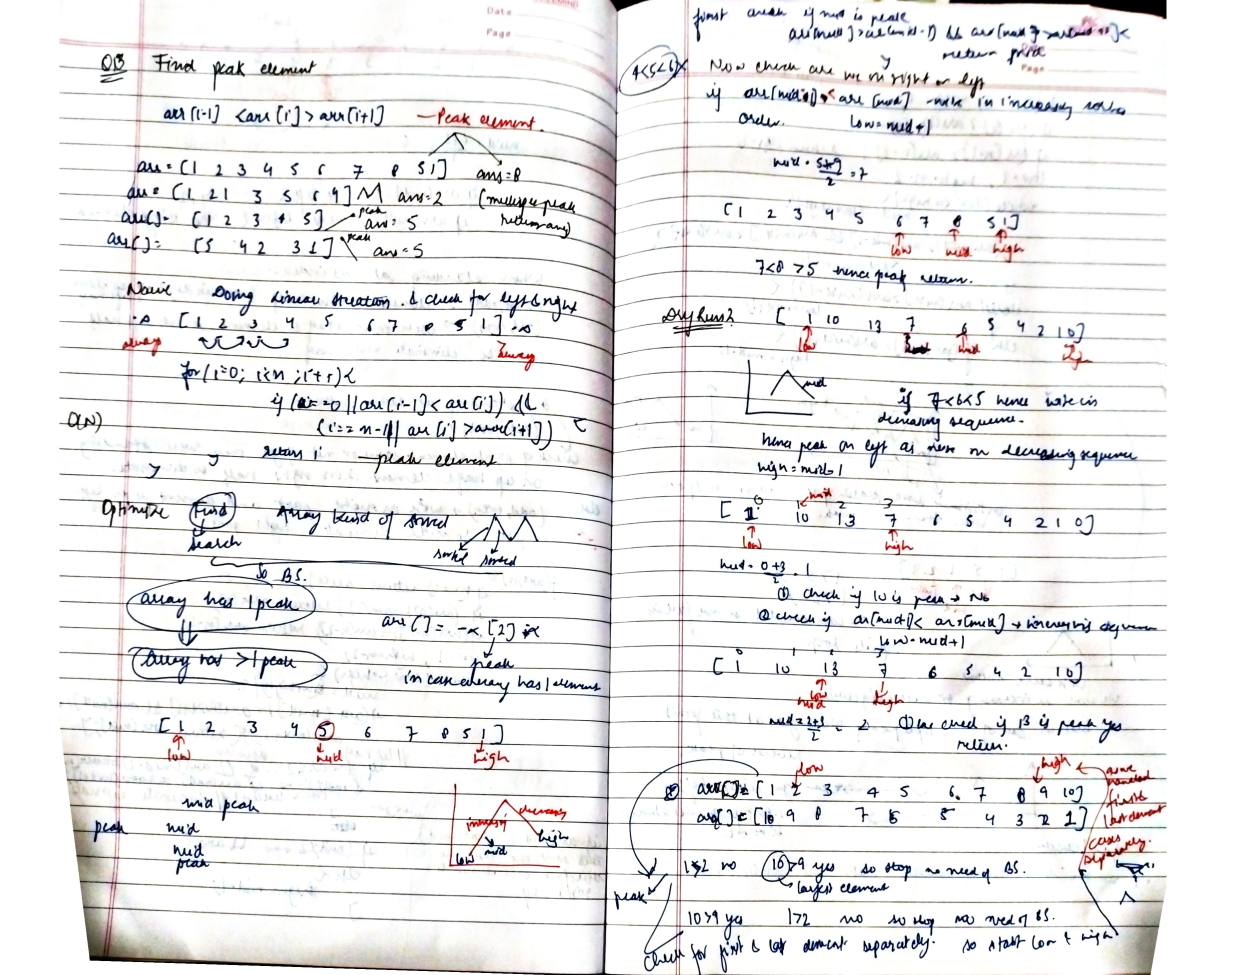 Date
Page
Q13 Find peak element
arr[i-1] < arr[i] > arr[i+1] — Peak element.
arr = [1 2 3 4 5 6 7 8 5 1] ans = 8
arr = [1 2 1 3 5 6 4] ans = 2 (multiple peak return any)
arr[] = [1 2 3 4 5] peak ans = 5
arr[] = [5 4 2 3 1] peak ans = 5
Naive Doing linear iteration & check for left & right
-∞ [1 2 3 4 5 6 7 8 5 1] -∞
always always
for(i=0; i<n; i++){
if (i==0 || arr[i-1] < arr[i]) &&
(i==n-1 || arr[i] > arr[i+1]) {
O(N)
return i — peak element
}
}
Optimize Find Array kind of sorted
search sorted sorted
so BS.
array has 1 peak
arr[] = -∞ [2] -∞
Array has >1 peak
peak
in case array has 1 element
[1 2 3 4 5 6 7 8 5 1]
low mid high
mid peak
peak mid
mid
peak
increasing decreasing
low mid high
first check if mid is peak
arr[mid] > arr[mid-1] && arr[mid] > arr[mid+1] {
return mid
}
4<5<6
Page
Now check are we in right or left
if arr[mid-1] < arr[mid] - in increasing
order. low = mid+1
mid = 5+9/2 = 7
[1 2 3 4 5 6 7 8 5 1]
low mid high
7<8>5 hence peak return.
Dry Run 2
[1 10 13 7 6 5 4 2 1 0]
low mid high
mid
if 7<6<5 hence
decreasing sequence.
hence peak on left as here on decreasing sequence
high = mid-1
0 1 mid 2 3
[1 10 13 7 6 5 4 2 1 0]
low high
mid = 0+3/2 = 1
① check if 10 is peak → No
② check if arr[mid-1] < arr[mid] → increasing sequence
low = mid+1
[1 10 13 7 6 5 4 2 1 0]
low high
mid
mid = 2+3/2 = 2 ① we check if 13 is peak yes
return.
low high
arr[] = [1 2 3 4 5 6 7 8 9 10]
arr[] = [10 9 8 7 6 5 4 3 2 1]
handled
first &
last element
cases
separately.
1>2 no 10>9 yes so stop no need of BS.
largest element
peak
10>9 yes 1>2 no so stop no need of BS.
Check for first & last element separately. so start low & high